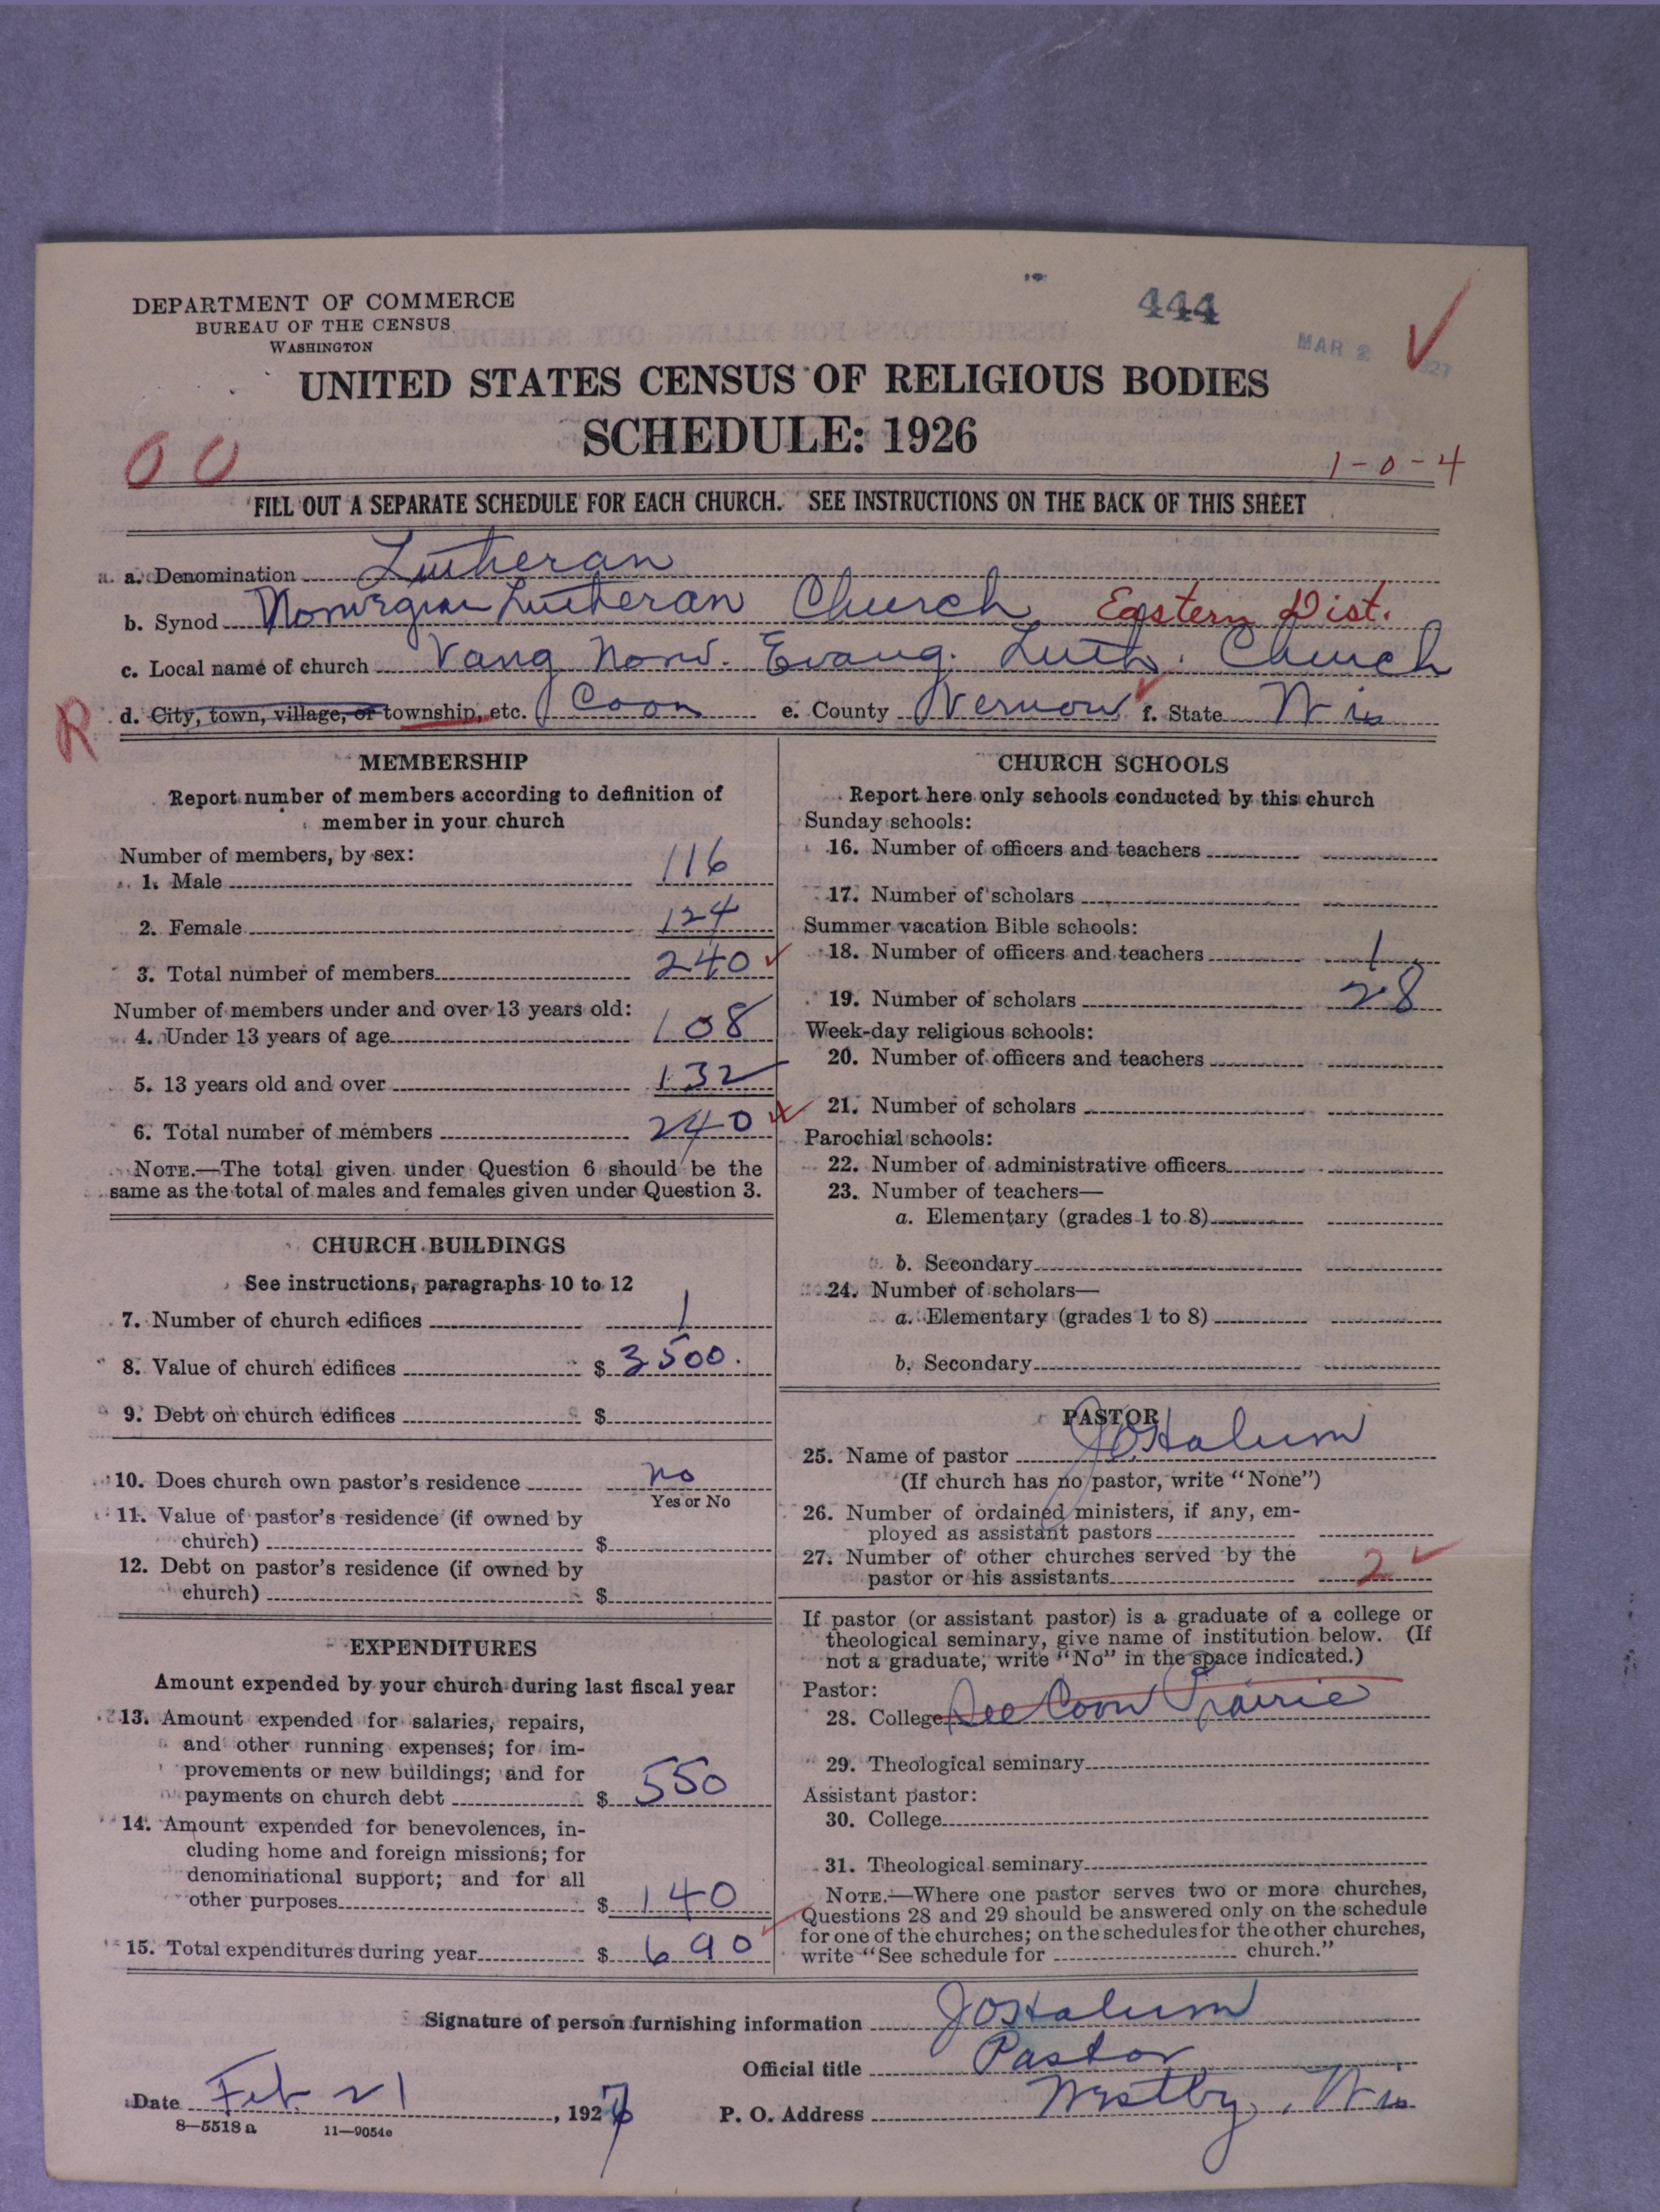 DEPARTMENT OF COMMERCE
BUREAU OF THE CENSUS
WASHINGTON
444
MAR 2
UNITED STATES CENSUS OF RELIGIOUS BODIES
SCHEDULE: 1926
0 0
1-0-4
FILL OUT A SEPARATE SCHEDULE FOR EACH CHURCH. SEE INSTRUCTIONS ON THE BACK OF THIS SHEET
a. Denomination Lutheran
b. Synod Norwegian Lutheran Church Eastern Dist.
c. Local name of church Vang Norw. Evang. Luth. Church
R d. City, town, village, or township, etc. Coon e. County Vernon f. State Wis
MEMBERSHIP
Report number of members according to definition of
member in your church
Number of members, by sex:
1. Male 116
2. Female 124
3. Total number of members 240
Number of members under and over 13 years old:
4. Under 13 years of age 108
5. 13 years old and over 132
6. Total number of members 240
NOTE.—The total given under Question 6 should be the
same as the total of males and females given under Question 3.
CHURCH BUILDINGS
See instructions, paragraphs 10 to 12
7. Number of church edifices 1
8. Value of church edifices $ 3500.
9. Debt on church edifices $
10. Does church own pastor's residence no
Yes or No
11. Value of pastor's residence (if owned by
church) $
12. Debt on pastor's residence (if owned by
church) $
EXPENDITURES
Amount expended by your church during last fiscal year
13. Amount expended for salaries, repairs,
and other running expenses; for im-
provements or new buildings; and for
payments on church debt $ 550
14. Amount expended for benevolences, in-
cluding home and foreign missions; for
denominational support; and for all
other purposes $ 140
15. Total expenditures during year $ 690
CHURCH SCHOOLS
Report here only schools conducted by this church
Sunday schools:
16. Number of officers and teachers
17. Number of scholars
Summer vacation Bible schools:
18. Number of officers and teachers 1
19. Number of scholars 28
Week-day religious schools:
20. Number of officers and teachers
21. Number of scholars
Parochial schools:
22. Number of administrative officers
23. Number of teachers—
a. Elementary (grades 1 to 8)
b. Secondary
24. Number of scholars—
a. Elementary (grades 1 to 8)
b. Secondary
PASTOR
25. Name of pastor JOHalum
(If church has no pastor, write "None")
26. Number of ordained ministers, if any, em-
ployed as assistant pastors
27. Number of other churches served by the
pastor or his assistants 2
If pastor (or assistant pastor) is a graduate of a college or
theological seminary, give name of institution below. (If
not a graduate, write "No" in the space indicated.)
Pastor:
28. College See Coon Prairie
29. Theological seminary
Assistant pastor:
30. College
31. Theological seminary
NOTE.—Where one pastor serves two or more churches,
Questions 28 and 29 should be answered only on the schedule
for one of the churches; on the schedules for the other churches,
write "See schedule for church."
Signature of person furnishing information JOHalum
Official title Pastor
Date Feb. 21, 1927 P. O. Address Westby, Wis
8—5518 a 11—9054e